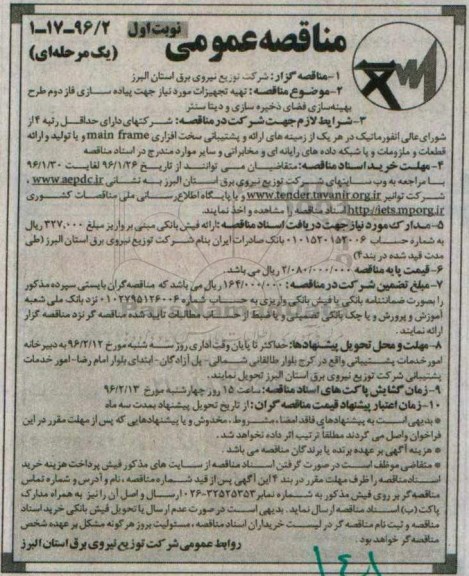 نوبت اول
۹۶/۲-۱۷-۱
مناقصه عمومی
(یک مرحله‌ای)
۱-مناقصه گزار: شرکت توزیع نیروی برق استان البرز
۲-موضوع مناقصه: تهیه تجهیزات مورد نیاز جهت پیاده سازی فاز دوم طرح
بهینه‌سازی فضای ذخیره سازی و دیتا سنتر
۳-شرایط لازم جهت شرکت در مناقصه: شرکتهای دارای حداقل رتبه ۴ از
شورای عالی انفورماتیک در هر یک از زمینه های ارائه و پشتیبانی سخت افزاری main frame و یا تولید و ارائه
قطعات و ملزومات و یا شبکه داده های رایانه ای و مخابراتی و سایر موارد مندرج در اسناد مناقصه
۴- مهلت خرید اسناد مناقصه: متقاضیان می توانند از تاریخ ۹۶/۱/۲۶ لغایت ۹۶/۱/۳۰
با مراجعه به وب سایتهای شرکت توزیع نیروی برق استان البرز به نشانی www.aepdc.ir ،
شرکت توانیر www.tender.tavanir.org.ir و یا پایگاه اطلاع رسانی ملی مناقصات کشوری
http://iets.mporg.ir اسناد مناقصه را مشاهده و اخذ نمایند.
۵-مدارک مورد نیاز جهت دریافت اسناد مناقصه: ارائه فیش بانکی مبنی بر واریز مبلغ ۳۲۷,۰۰۰ ریال
به شماره حساب ۰۱۰۱۵۲۰۱۵۲۰۰۶ بانک صادرات ایران بنام شرکت توزیع نیروی برق استان البرز (طی
مدت قید شده در بند ۴)
۶-قیمت پایه مناقصه ۲/۰۸۰/۰۰۰/۰۰۰ ریال می باشد.
۷-مبلغ تضمین شرکت در مناقصه: ۱۶۴/۰۰۰/۰۰۰ ریال می باشد که مناقصه گران بایستی سپرده مذکور
را بصورت ضمانتنامه بانکی یا فیش بانکی واریزی به حساب شماره ۰۱۰۲۷۹۵۱۲۶۰۰۶ نزد بانک ملی شعبه
آموزش و پرورش و یا چک بانکی تضمینی و یا ضبط از محل حساب مطالبات تایید شده مناقصه گر نزد مناقصه گزار
ارائه نمایند.
۸-مهلت و محل تحویل پیشنهادها: حداکثر تا پایان وقت اداری روز سه شنبه مورخ ۹۶/۲/۱۲ به دبیرخانه
امور خدمات پشتیبانی واقع در کرج بلوار طالقانی شمالی- پل آزادگان- ابتدای بلوار امام رضا- امور خدمات
پشتیبانی شرکت توزیع نیروی برق استان البرز تحویل نمایند.
۹-زمان گشایش پاکت های اسناد مناقصه: ساعت ۱۵ روز چهارشنبه مورخ ۹۶/۲/۱۳
۱۰-زمان اعتبار پیشنهاد قیمت مناقصه گران: از تاریخ تحویل پیشنهاد بمدت سه ماه
* بدیهی است به پیشنهادهای فاقد امضاء، مشروط، مخدوش و یا پیشنهادهایی که پس از مهلت مقرر در این
فراخوان واصل می گردند مطلقا ترتیب اثر داده نخواهد شد.
* هزینه آگهی بر عهده برنده یا برندگان مناقصه می باشد
* متقاضی موظف است در صورت گرفتن اسناد مناقصه از سایت های مذکور فیش پرداخت هزینه خرید
اسناد مناقصه را ظرف مهلت مقرر در بند ۴ این آگهی پس از قید شماره مناقصه، نام و آدرس و شماره تماس
مناقصه گر بر روی فیش مذکور به شماره نمابر ۳۲۵۲۵۳۵۳-۰۲۶ ارسال و اصل آن را نیز به همراه مدارک
پاکت (ب) اسناد مناقصه ارسال نماید. بدیهی است در صورت عدم ارسال یا تحویل فیش بانکی خرید اسناد
مناقصه و ثبت نام مناقصه گر در لیست خریداران اسناد مناقصه، مسئولیت بروز هر گونه مشکل بر عهده شخص
مناقصه گر خواهد بود.
روابط عمومی شرکت توزیع نیروی برق استان البرز
۱۴۸